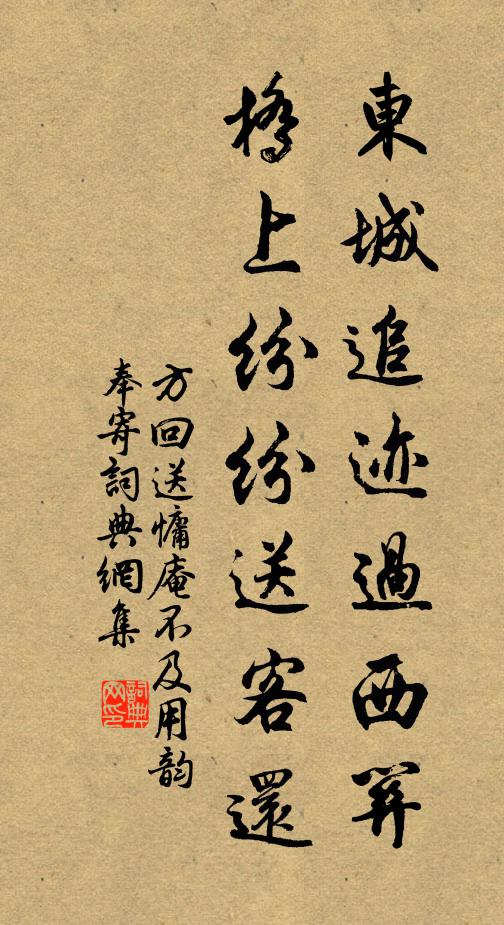 東城追迹過西關
橋上紛紛送客還
方回送慵庵不及用韵
奉寄詞典網集
詞典
网印